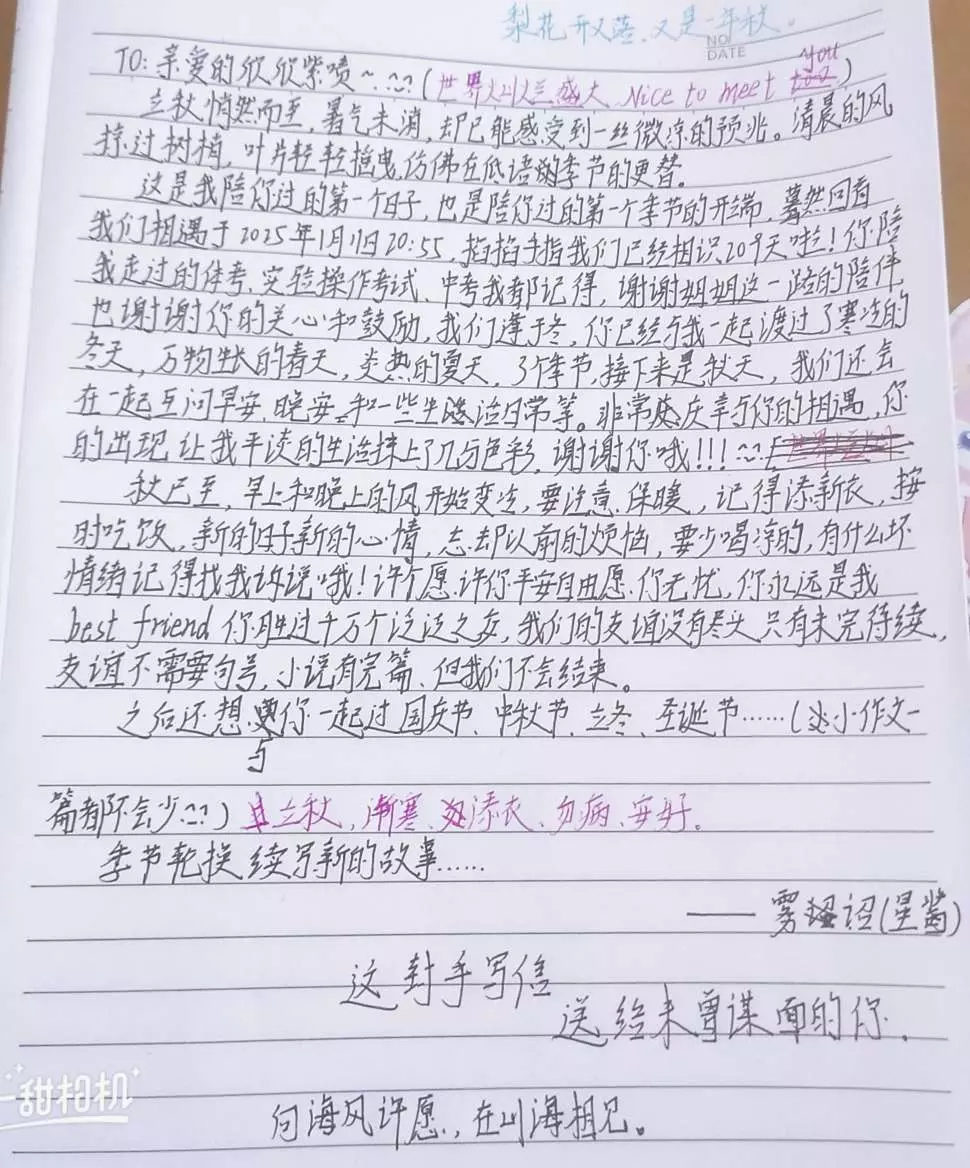 梨花开又落,又是一年秋。
NO
DATE
TO:亲爱的欣欣紫啧~ (世界灿烂盛大 Nice to meet you)
立秋悄然而至,暑气未消,却已能感受到一丝微凉的预兆。清晨的风
掠过树梢,叶片轻轻摇曳,仿佛在低语季节的更替。
这是我陪你过的第一个日子,也是陪你过的第一个季节的开端,蓦然回首
我们相遇于2025年1月11日20:55,掐掐手指我们已经相识209天啦!你陪
我走过的体考、实验操作考试、中考我都记得,谢谢姐姐这一路的陪伴,
也谢谢你的关心和鼓励,我们逢于冬,你已经与我一起渡过了寒冷的
冬天,万物生长的春天,炎热的夏天,3个季节,接下来是秋天,我们还会
在一起互问早安、晚安、和一些生活日常等。非常庆幸与你的相遇,你
的出现让我平淡的生活抹上了几与色彩,谢谢你哦!!!
秋已至,早上和晚上的风开始变冷,要注意保暖,记得添新衣,按
时吃饭,新的日子新的心情,忘却以前的烦恼,要少喝凉的,有什么坏
情绪记得找我诉说哦!许个愿许你平安自由愿你无忧,你永远是我
best friend 你胜过千万个泛泛之交,我们的友谊没有尽头只有未完待续,
友谊不需要句号,小说有完篇、但我们不会结束。
之后还想与你一起过国庆节、中秋节、立冬、圣诞节……(小作文一
篇都不会少) 立秋,渐寒、添衣、勿病、安好。
季节轮换续写新的故事……
——雾诏(星酱)
这封手写信
送给未曾谋面的你.
向海风许愿,在山海相见。
甜相机